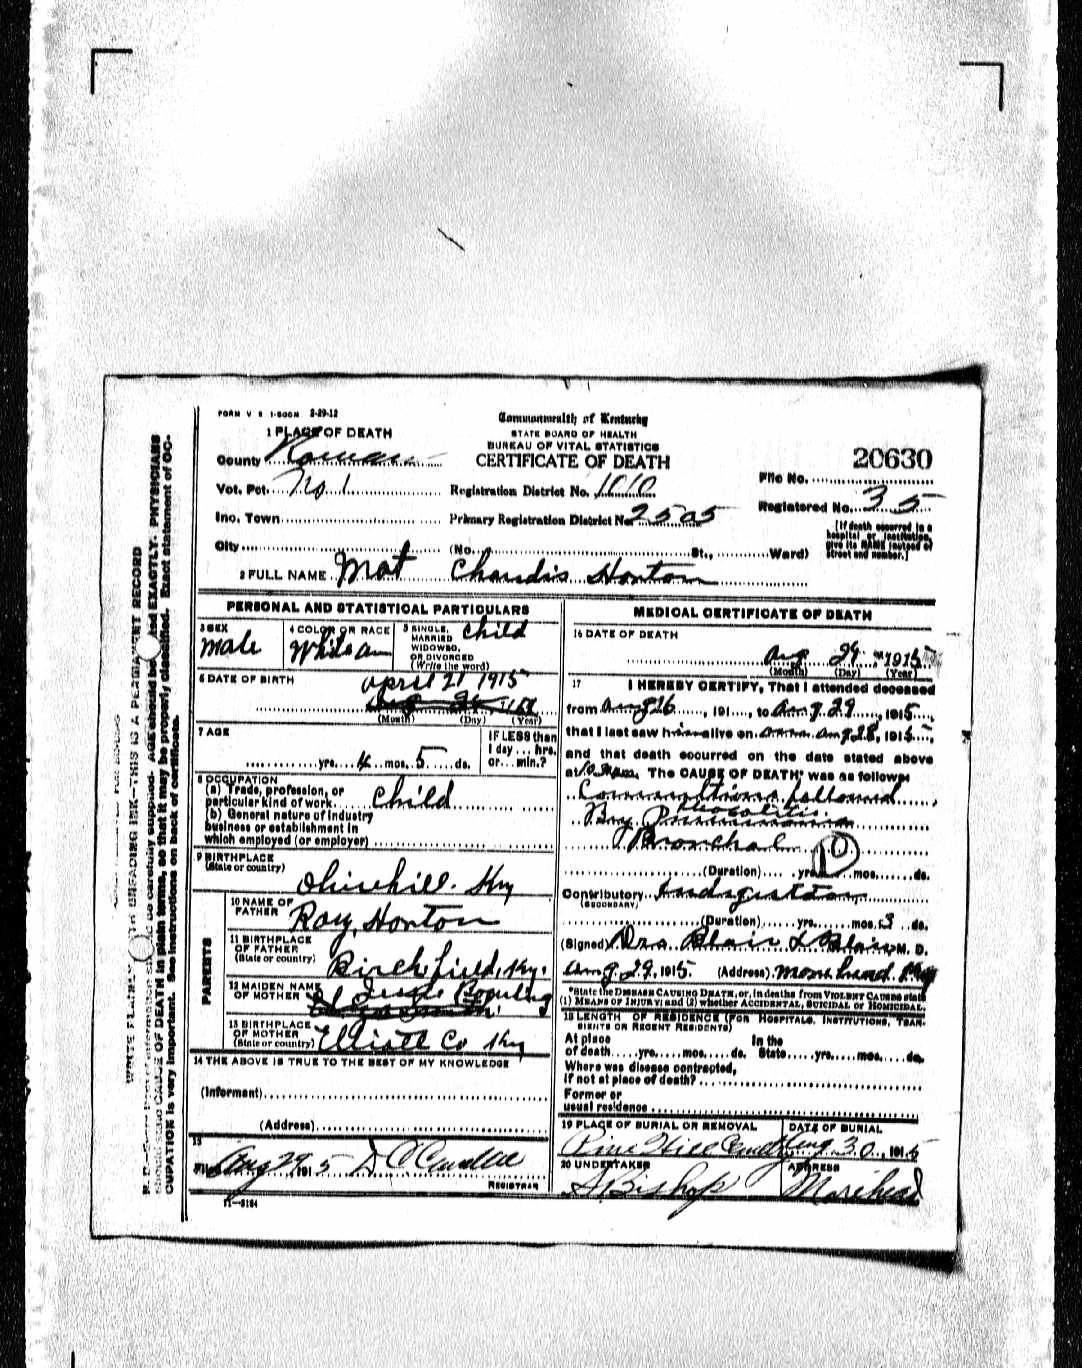 FORM V S 1-500M 2-29-12
Commonwealth of Kentucky
STATE BOARD OF HEALTH
BUREAU OF VITAL STATISTICS
CERTIFICATE OF DEATH
20630
1 PLACE OF DEATH
County Rowan
Vot. Pct. No. 1
Registration District No. 1010
File No.
Registered No. 35
Inc. Town
Primary Registration District No. 2505
[If death occurred in a
hospital or institution,
give its NAME instead of
street and number.]
City (No. St., Ward)
2 FULL NAME Mat Chandis Honton
PERSONAL AND STATISTICAL PARTICULARS
3 SEX
male
4 COLOR OR RACE
White
5 SINGLE,
MARRIED
WIDOWED,
OR DIVORCED
(Write the word)
child
6 DATE OF BIRTH
april 21 1915
(Month) (Day) (Year)
7 AGE
yrs. 4 mos. 5 ds.
IF LESS than
1 day ... hrs.
or ... min.?
8 OCCUPATION
(a) Trade, profession, or
particular kind of work
child
(b) General nature of industry
business or establishment in
which employed (or employer)
9 BIRTHPLACE
(State or country)
Ky
10 NAME OF
FATHER
Ray Honton
11 BIRTHPLACE
OF FATHER
(State or country)
Birchfield, Ky.
12 MAIDEN NAME
OF MOTHER
13 BIRTHPLACE
OF MOTHER
(State or country)
Elliott Co Ky
PARENTS
14 THE ABOVE IS TRUE TO THE BEST OF MY KNOWLEDGE
(Informant)
(Address)
15
Filed Aug 29, 1915
REGISTRAR
11-3184
MEDICAL CERTIFICATE OF DEATH
16 DATE OF DEATH
Aug 29, 1915
(Month) (Day) (Year)
17
I HEREBY CERTIFY, That I attended deceased
from Aug 26, 191 , to Aug. 29, 1915,
that I last saw him alive on Aug 28, 1915,
and that death occurred on the date stated above
at m. The CAUSE OF DEATH* was as follows:
followed
By
Bronchal
10
(Duration) yrs. mos. ds.
Contributory Indigestion
(SECONDARY)
(Duration) yrs. mos. 3 ds.
(Signed) Drs. Blair & Blair M. D.
Aug. 29, 1915 (Address) Morehead Ky
*State the DISEASE CAUSING DEATH, or, in deaths from VIOLENT CAUSES state
(1) MEANS OF INJURY; and (2) whether ACCIDENTAL, SUICIDAL or HOMICIDAL.
18 LENGTH OF RESIDENCE (FOR HOSPITALS, INSTITUTIONS, TRAN-
SIENTS OR RECENT RESIDENTS)
At place
of death yrs. mos. ds.
In the
State yrs. mos. ds.
Where was disease contracted,
if not at place of death?
Former or
usual residence
19 PLACE OF BURIAL OR REMOVAL
Pine Hill Cemetery
DATE OF BURIAL
Aug. 30, 1915
20 UNDERTAKER
S Bishop
ADDRESS
Morehead
CAUSE OF DEATH in plain terms, so that it may be properly classified. Exact statement of OC-
CUPATION is very important. See instructions on back of certificate.